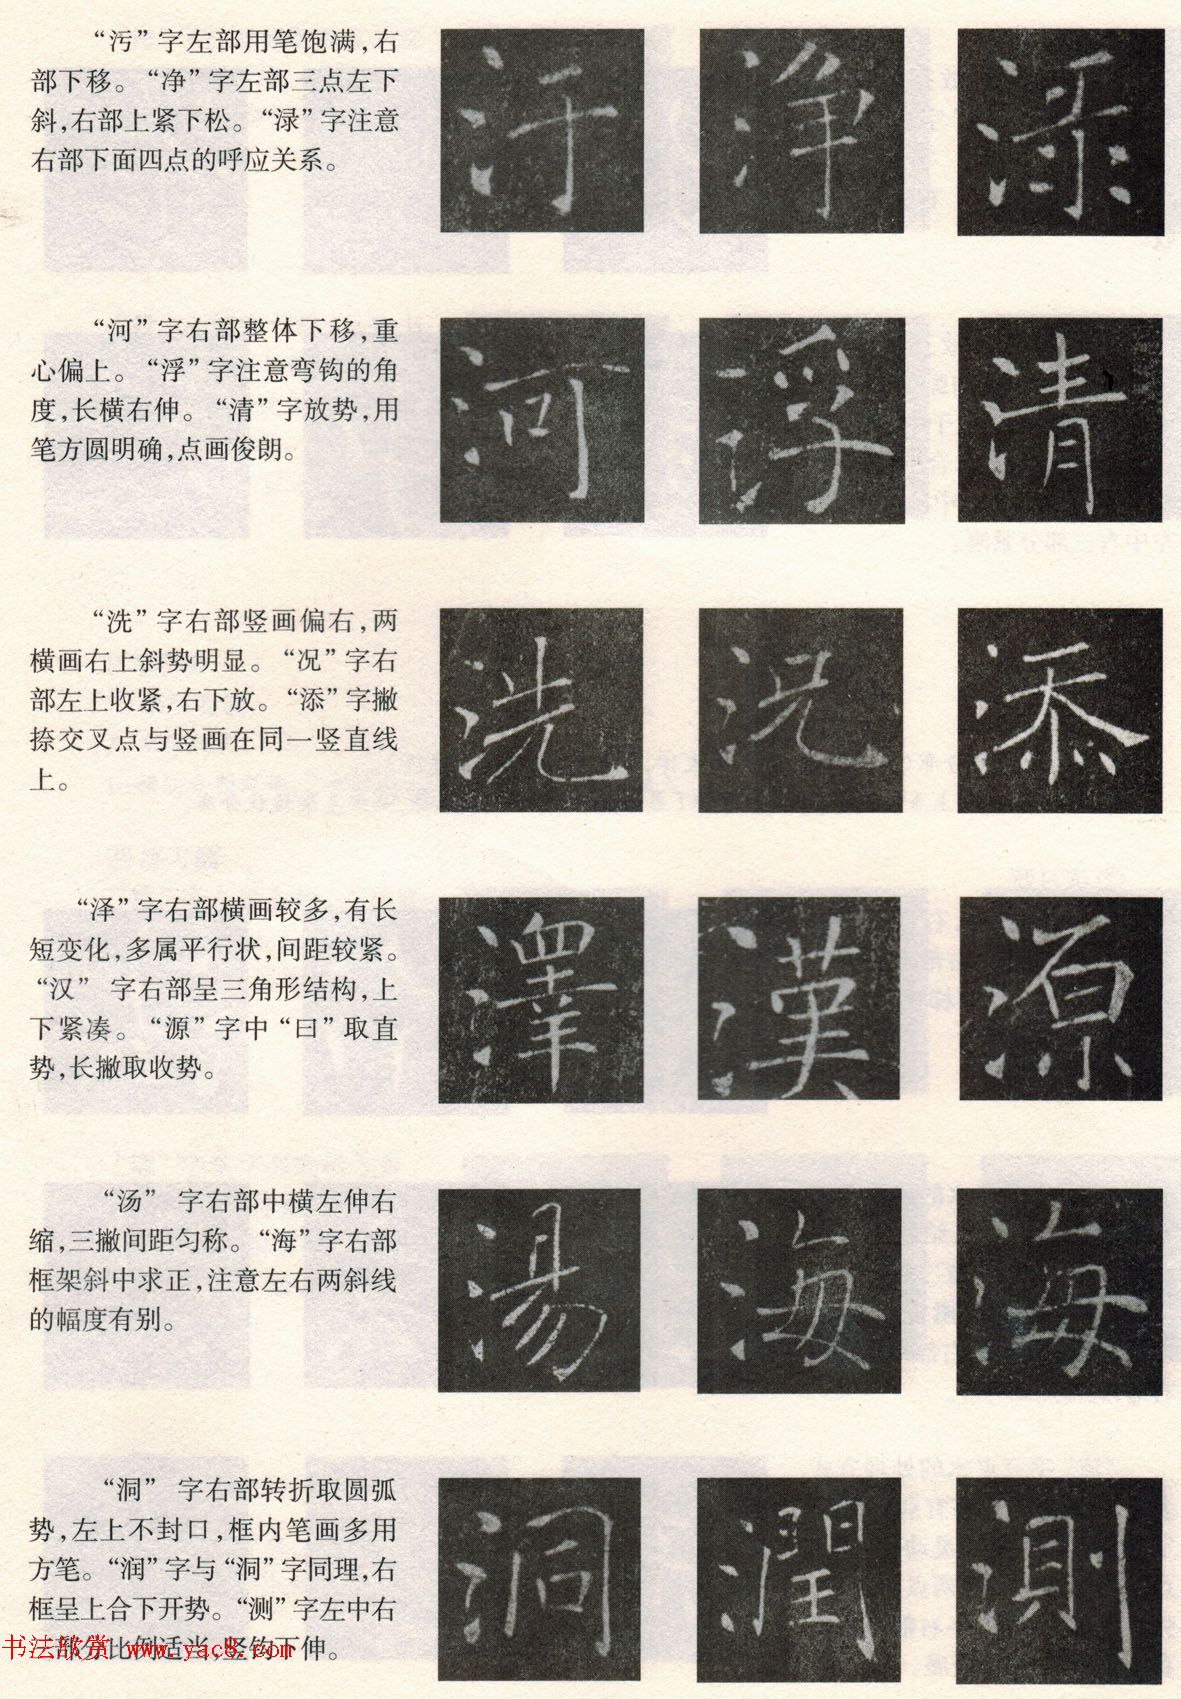 “污”字左部用笔饱满,右
部下移。“净”字左部三点左下
斜,右部上紧下松。“渌”字注意
右部下面四点的呼应关系。
汙 净 渌
“河”字右部整体下移,重
心偏上。“浮”字注意弯钩的角
度,长横右伸。“清”字放势,用
笔方圆明确,点画俊朗。
河 浮 清
“洗”字右部竖画偏右,两
横画右上斜势明显。“况”字右
部左上收紧,右下放。“添”字撇
捺交叉点与竖画在同一竖直线
上。
洗 况 添
“泽”字右部横画较多,有长
短变化,多属平行状,间距较紧。
“汉” 字右部呈三角形结构,上
下紧凑。“源”字中“曰”取直
势,长撇取收势。
澤 漢 源
“汤” 字右部中横左伸右
缩,三撇间距匀称。“海”字右部
框架斜中求正,注意左右两斜线
的幅度有别。
湯 海 海
“洞” 字右部转折取圆弧
势,左上不封口,框内笔画多用
方笔。“润”字与“洞”字同理,右
框呈上合下开势。“测”字左中右
三部分比例适当,竖钩下伸。
书法欣赏 www.yac8.com
洞 潤 測